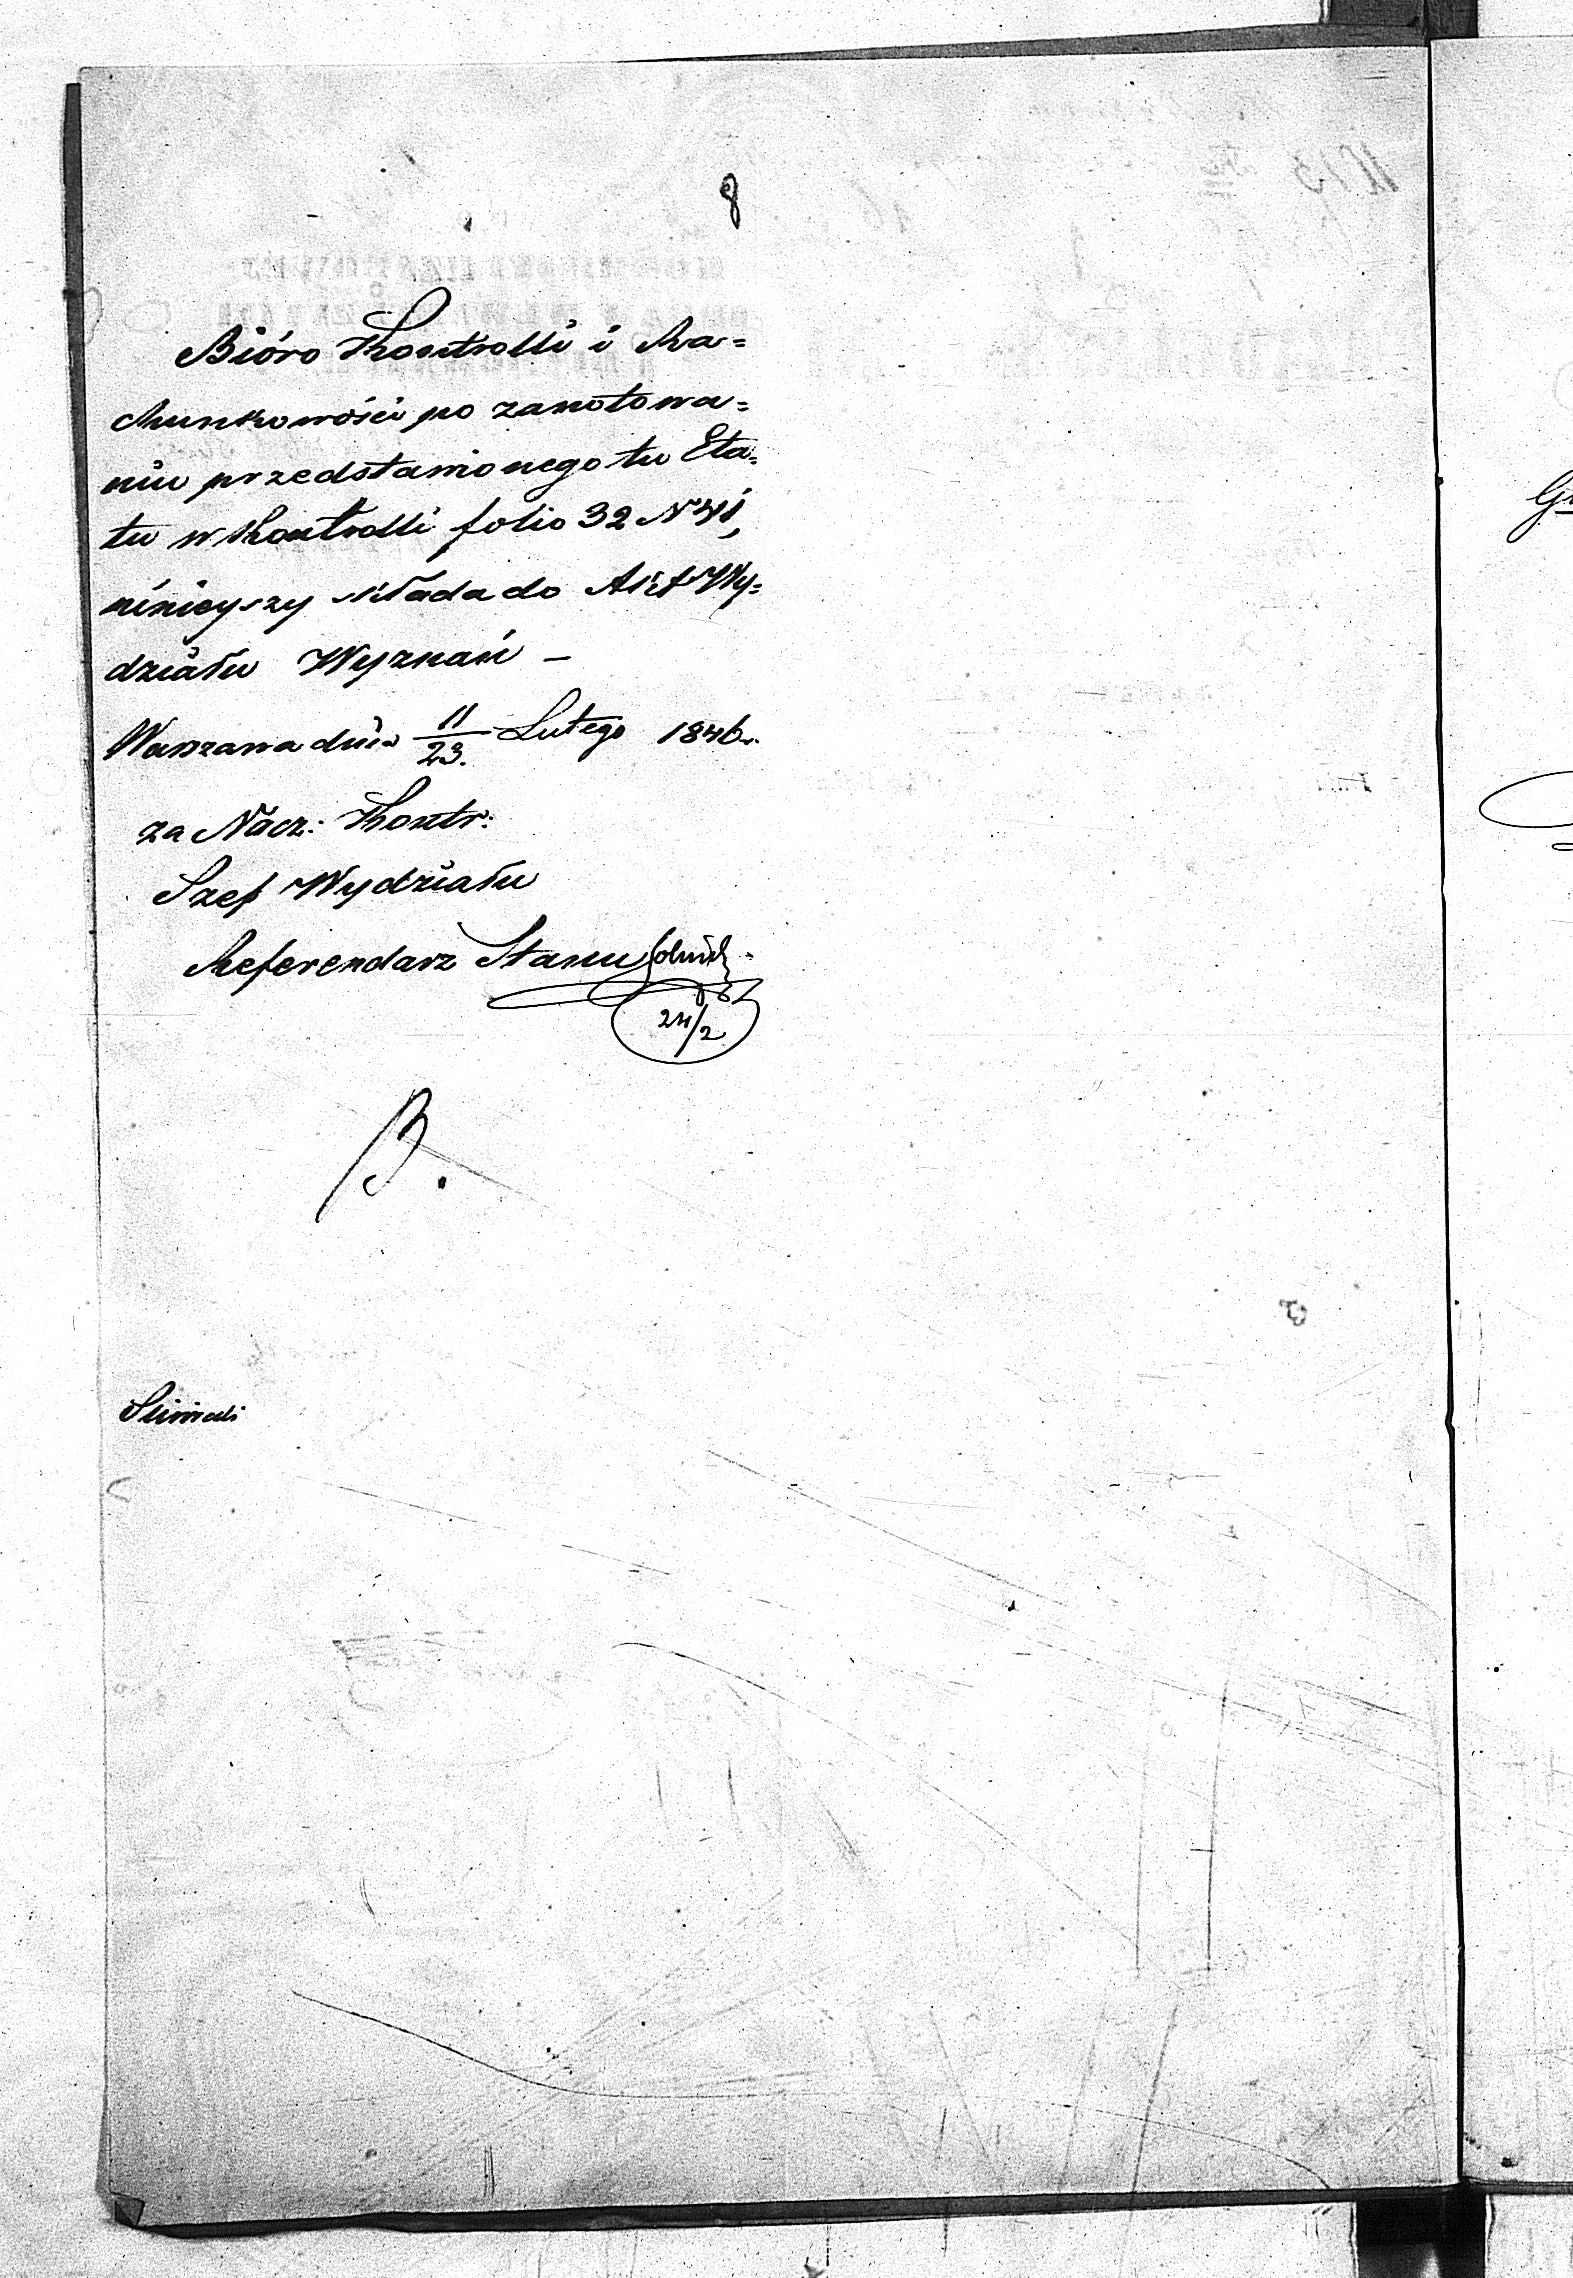 8
Bióro Kontrolli i Ra=
chunkowości po zanotowa=
niu przedstawionego tu Eta=
tu w Kontrolli folio 32 N 41,
niniejszy składa do Akt Wy=
działu Wyznań –
Warszawa dnia 11/23. Lutego 1846 r.
za Nacz: Kontr:
Szef Wydziału
Referendarz Stanu
24/2
B.